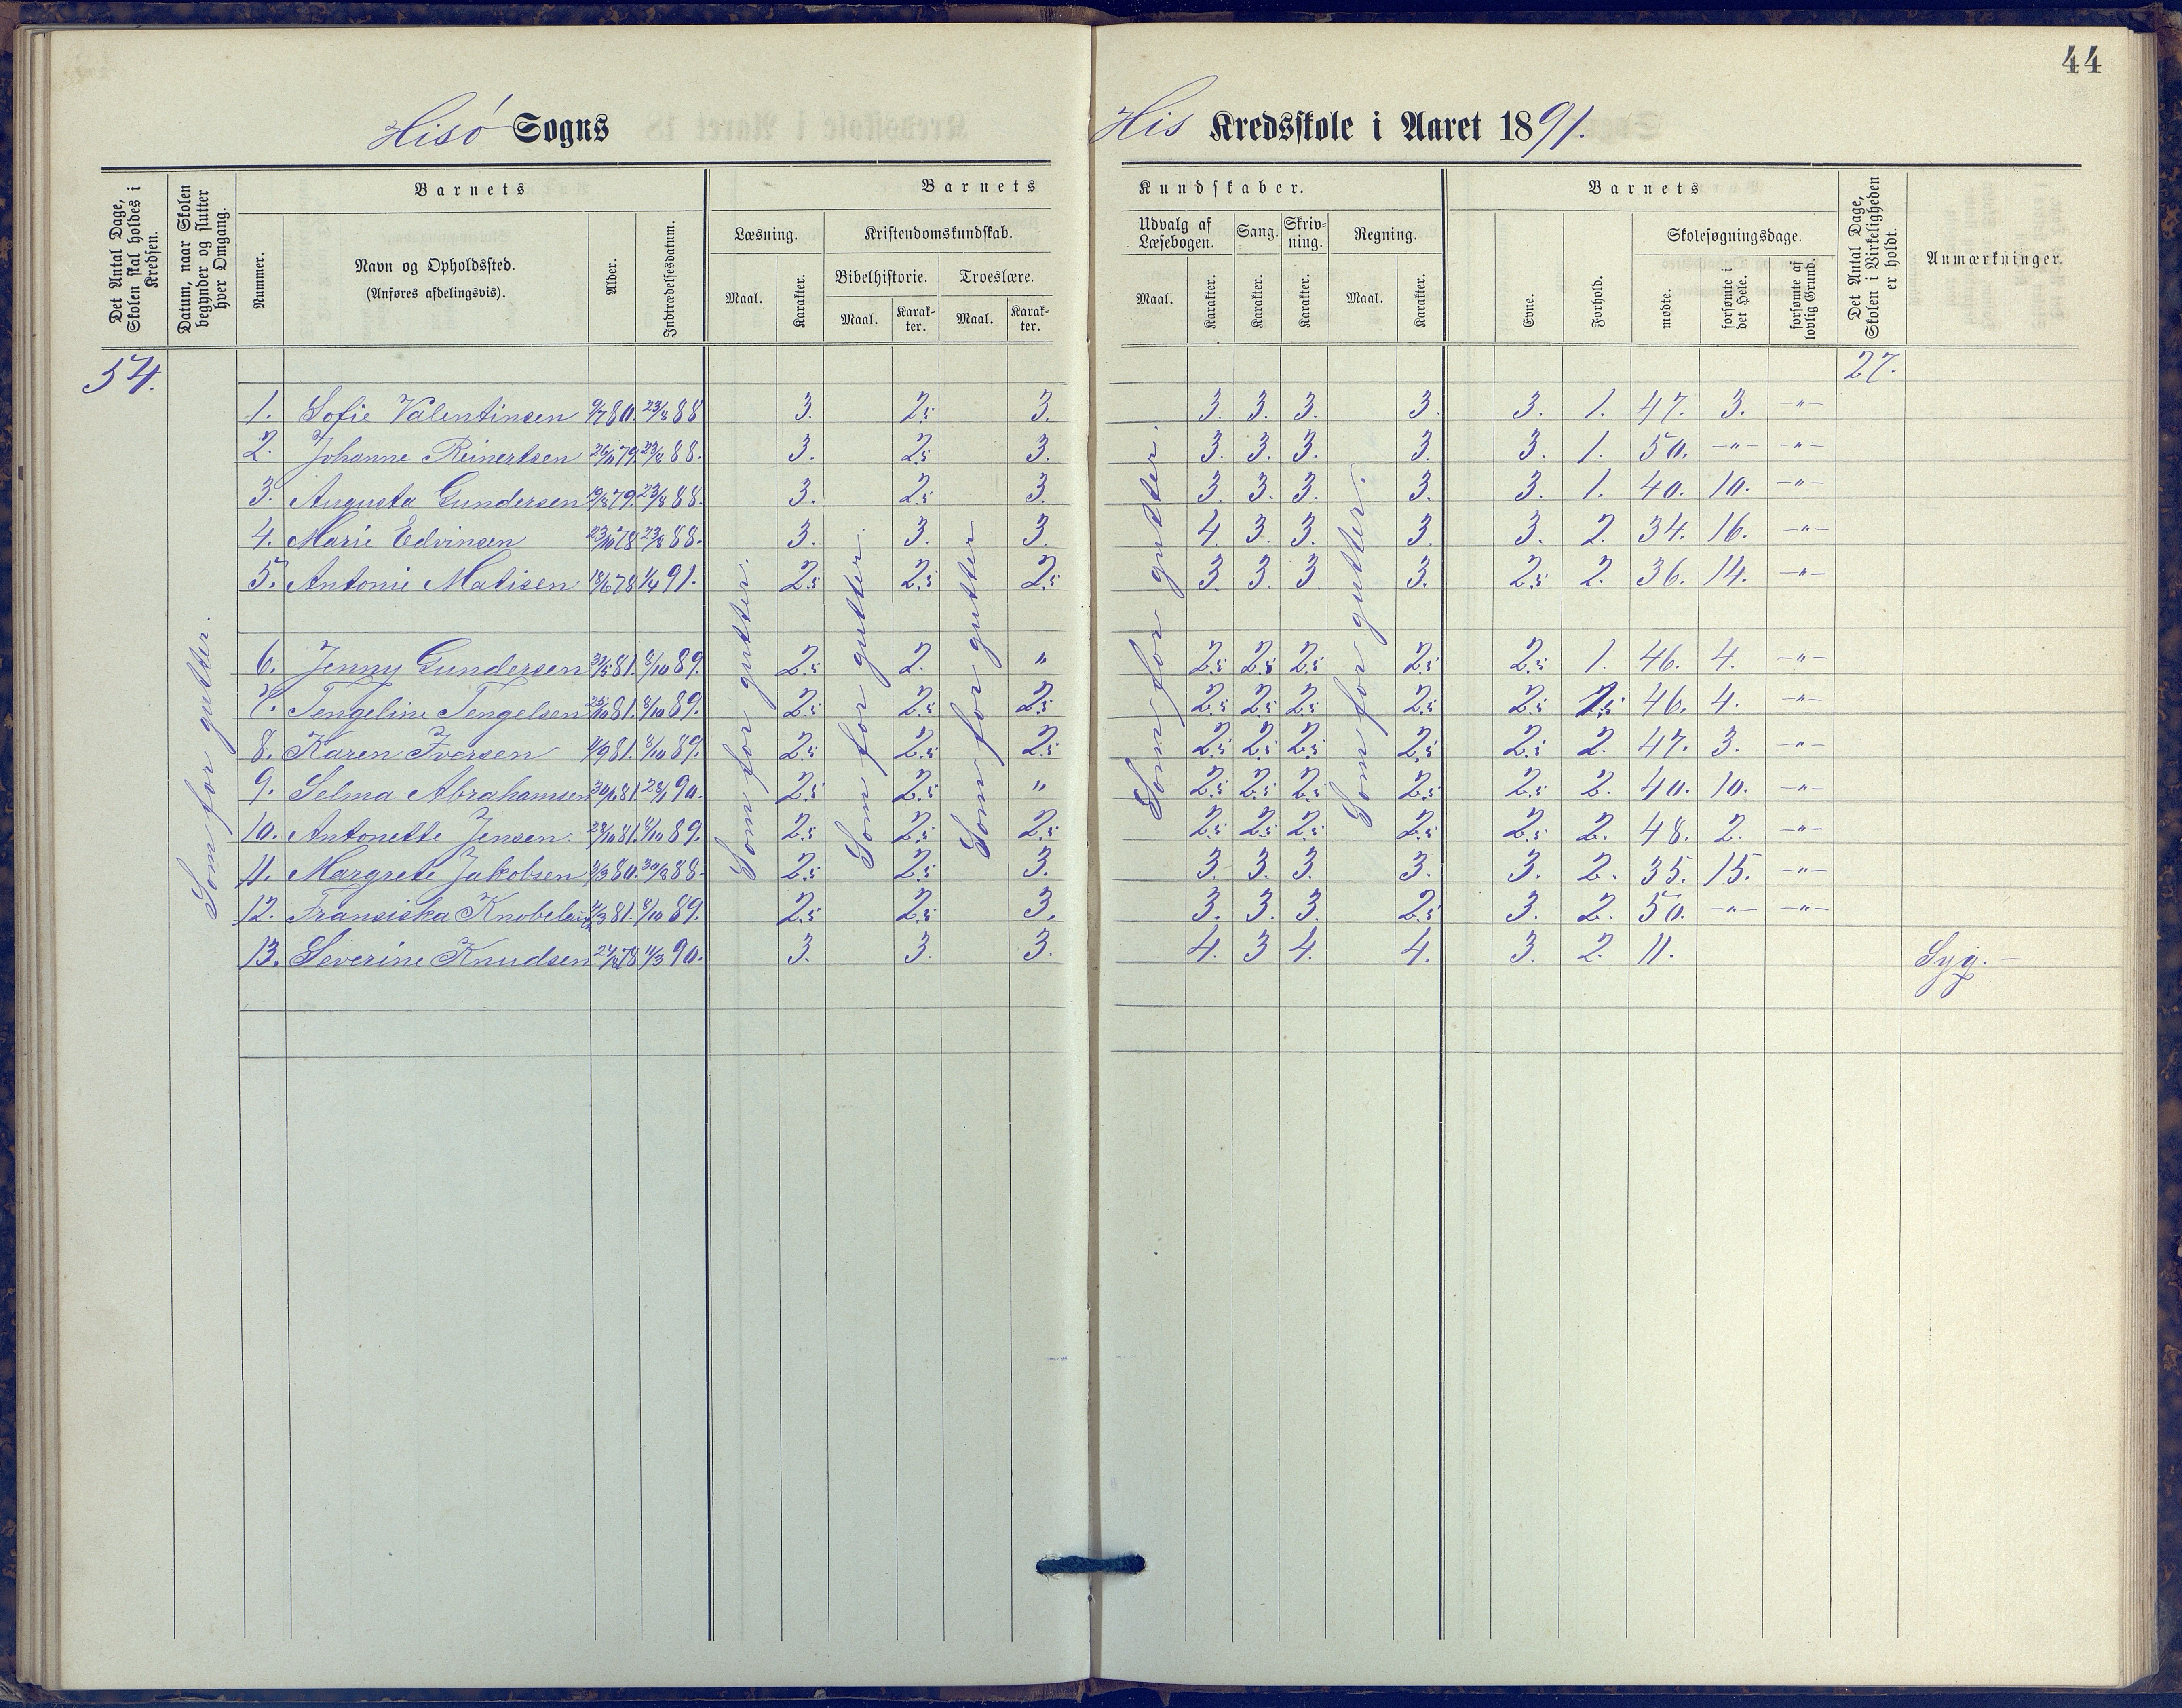 44
Hisö Sogns
His Kredsskole i Aaret 1891.
Det Antal Dage, Skolen skal holdes i Kredsen.
Datum, naar Skolen begynder og slutter hver Omgang.
Barnets
Nummer.
Navn og Opholdssted.
(Anføres afdelingsvis).
Alder.
Indtrædelsesdatum.
Barnets Kundskaber.
Læsning.
Maal. Karakter.
Kristendomskundskab.
Bibelhistorie. Troeslære.
Maal. Karakter. Maal. Karakter.
Udvalg af Læsebogen. Sang. Skrivning. Regning.
Maal. Karakter. Karakter. Karakter. Maal. Karakter.
Barnets
Evne. Forhold.
Skolesøgningsdage.
mødte. forsømte i det Hele. forsømte af lovlig Grund.
Det Antal Dage, Skolen i Virkeligheden er holdt.
Anmærkninger.
54. 27.
Som for gutter.
Som for gutter.
Som for gutter.
Som for gutter
Som for gutter.
Som for gutter.
1. Sofie Valentinsen 9/7 80. 23/8 88 3. 2.5 3. 3. 3. 3. 3. 3. 1. 47. 3. -"-
2. Johanne Reinertsen 79. 23/8 88. 3. 2.5 3. 3. 3. 3. 3. 3. 1. 50. -"- -"-
3. Augusta Gundersen 79. 23/8 88. 3. 2.5 3. 3. 3. 3. 3. 3. 1. 40. 10. -"-
4. Marie Edvinsen 23/10 78 23/8 88. 3. 3. 3. 4. 3. 3. 3. 3. 2. 34. 16. -"-
5. Antonie Matisen 18/6 78 1/4 91. 2.5 2.5 2.5 3. 3. 3. 3. 2.5 2. 36. 14. -"-
6. Jenny Gundersen 81. 8/10 89. 2.5 2. " 2.5 2.5 2.5 2.5 2.5 1. 46. 4. -"-
7. Tengeline Tengelsen 81. 8/10 89. 2.5 2.5 2.5 2.5 2.5 2.5 2.5 2.5 1.5 46. 4. -"-
8. Karen Iversen 81. 8/10 89. 2.5 2.5 2.5 2.5 2.5 2.5 2.5 2.5 2. 47. 3. -"-
9. Selma Abrahamsen 81. 90. 2.5 2.5 " 2.5 2.5 2.5 2.5 2.5 2. 40. 10. -"-
10. Antonette Jensen. 81. 8/10 89. 2.5 2.5 2.5 2.5 2.5 2.5 2.5 2.5 2. 48. 2. -"-
11. Margrete Jakobsen 80. 88. 2.5 2.5 3. 3. 3. 3. 3. 3. 2. 35. 15. -"-
12. Fransiska 81. 8/10 89. 2.5 2.5 3. 3. 3. 3. 2.5 3. 2. 50. -"- -"-
13. Severine Knudsen 78 11/3 90. 3. 3. 3. 4. 3 4. 4. 3. 2. 11. Syg. -